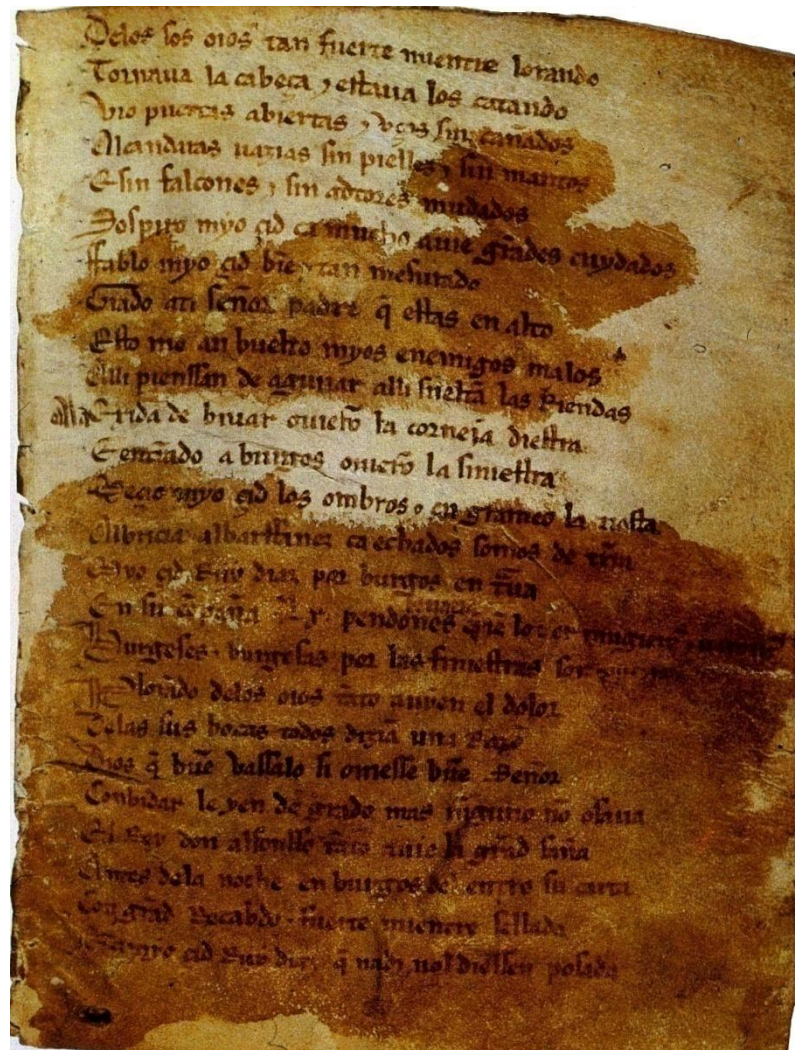 Delos sos oios tan fuerte mientre lorando
Tornaua la cabeça ⁊ estaua los catando
Vio puertas abiertas ⁊ vços sin cañados
Alcandaras uazias sin pielles ⁊ sin mantos
E sin falcones ⁊ sin adtores mudados
Sospiro myo çid ca mucho auie gr̃ades cuydados
Ffablo myo çid bie᷉ ⁊ tan mesurado
Grado ati señor padre q̃ estas en alto
Esto me an buelto myos enemigos malos
Alli pienssan de aguiiar alli sueltã las Riendas
Ala Exida de biuar ouierõ la corneia diestra
E entrãdo a burgos ouierõ la siniestra
Meçio myo çid los ombros ⁊ en grameo la tiesta
Albricia albarffanez ca echados somos de tr̃ra
Myo çid Ruy diaz por burgos en trãua
En su cõpaña .Lx. pendones
Burgeses ⁊ burgesas por las finiestras son
Plorãdo delos oios tãto auyen el dolor
Delas sus bocas todos dizian una Razõ
Dios q̃ bue᷉ vassalo si ouiesse bue᷉ Señor
Conbidar le yen de grado mas ninguno nõ osaua
El Rey don alfonsso tãto auie la grãd saña
Antes dela noche en burgos del entro su carta
Con grãd Recabdo ⁊ fuerte mientre sellada
çid Ruy diaz q̃ nadi nol diessen posada